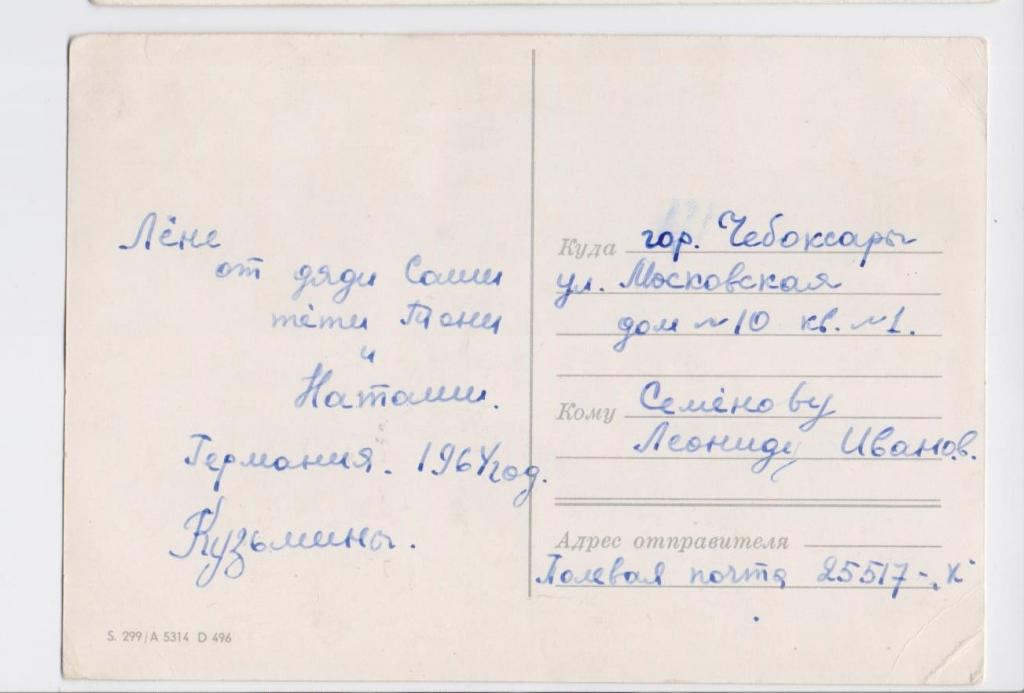 Лёне
от дяди Саши
тёти Тони
и
Наташи.
Германия. 1964 год.
Кузьмины.
S. 299/A 5314 D 496
Куда гор. Чебоксары
ул. Московская
дом №10 кв. №1.
Кому Семёнову
Леониду Иванов.
Адрес отправителя
Полевая почта 25517-„К"